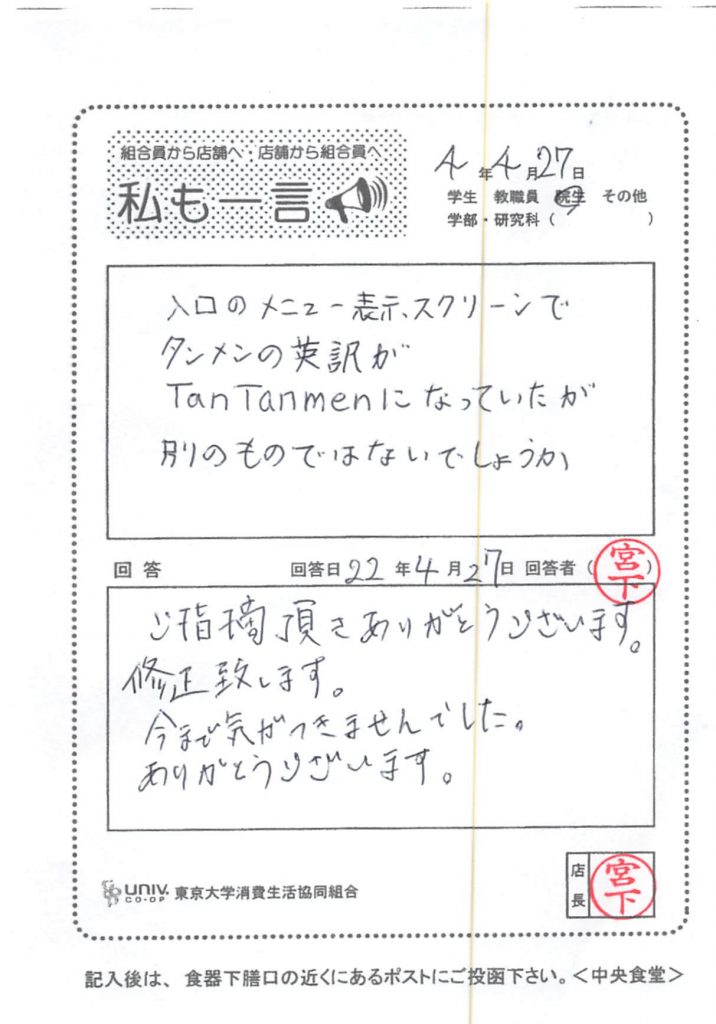 組合員から店舗へ・店舗から組合員へ
私も一言
4年4月27日
学生 教職員 院生 その他
学部・研究科（ ）
入口のメニュー表示、スクリーンで
タンメンの英訳が
TanTanmenになっていたが
別のものではないでしょうか
回答 回答日22年4月27日 回答者（宮下）
ご指摘頂きありがとうございます。
修正致します。
今まで気がつきませんでした。
ありがとうございます。
UNIV. CO-OP 東京大学消費生活協同組合
店長 宮下
記入後は、食器下膳口の近くにあるポストにご投函下さい。＜中央食堂＞